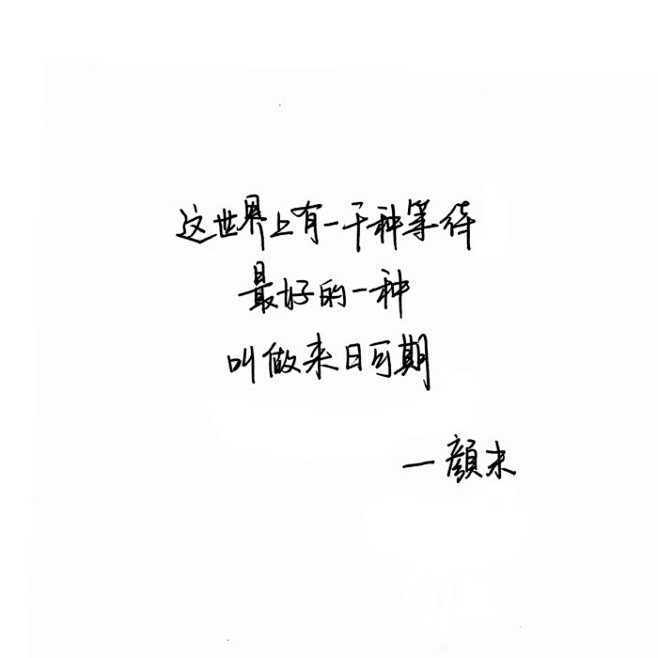 这世界上有一千种等待
最好的一种
叫做来日可期
—顏未